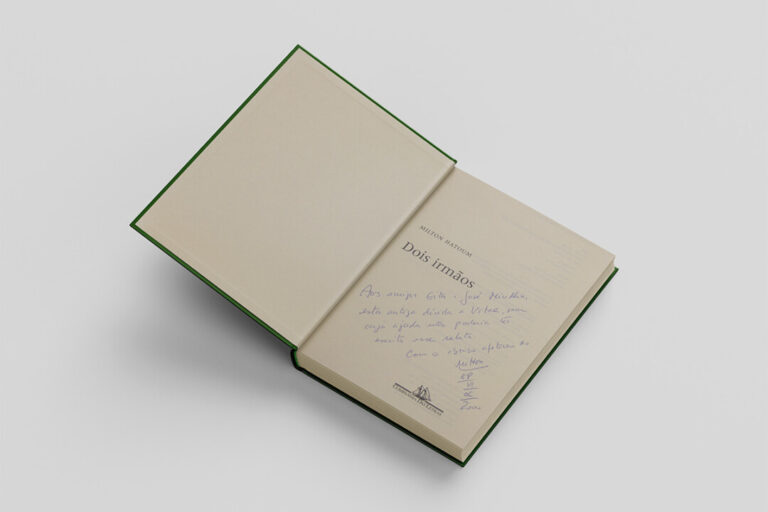 MILTON HATOUM
Dois irmãos
Aos amigos Gita e José Mindlin,
esta antiga dívida a Vocês, sem
cuja ajuda não poderia ter
escrito esse relato.
Com o abraço afetuoso do
Milton
SP
VI
2000
COMPANHIA DAS LETRAS